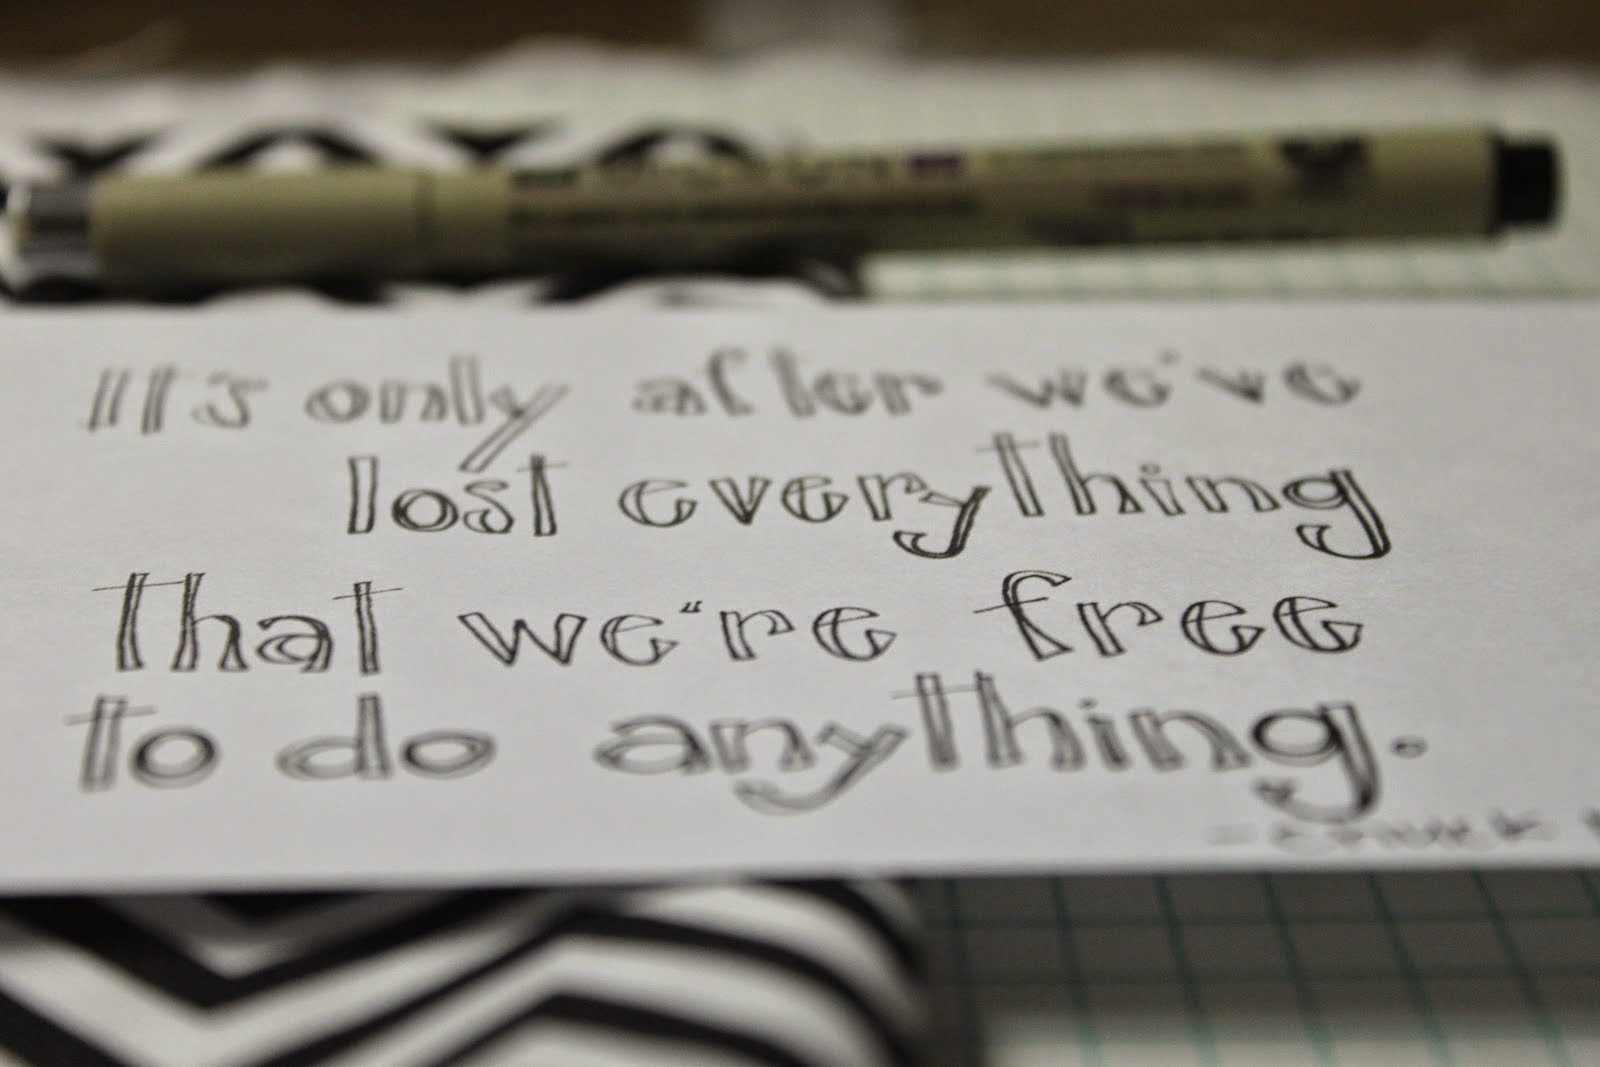 It's only after we've
lost everything
that we're free
to do anything.